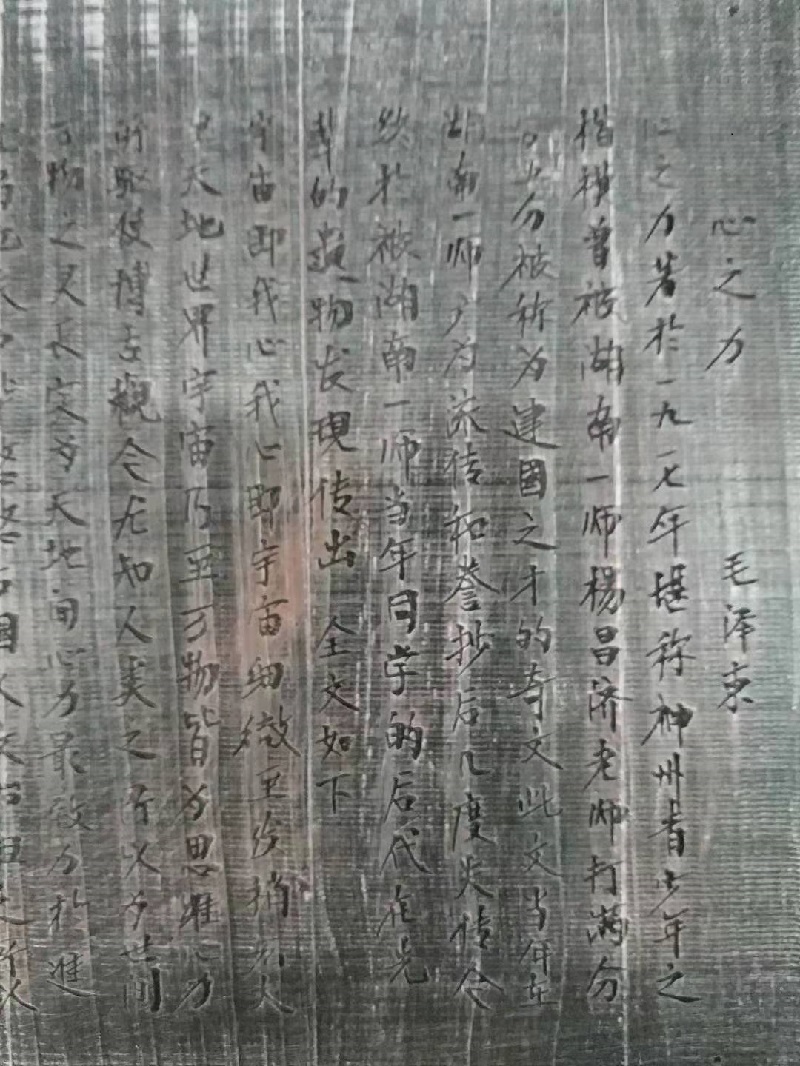 心之力 毛泽东
心之力著於一九一七年堪称神州青少年之
楷模曾被湖南一师杨昌济老师打满分
分被称为建国之才的奇文此文当年在
湖南一师广为流传和誊抄后几度失传今
终於被湖南一师当年同学的后代在先
辈的遗物发现传出 全文如下
宇宙即我心我心即宇宙细微至发梢
天地世界宇宙乃至万物皆为思维心力
所驱使博古觀今尤知人类之所以为世间
万物之灵长实为天地间心力最致力於進